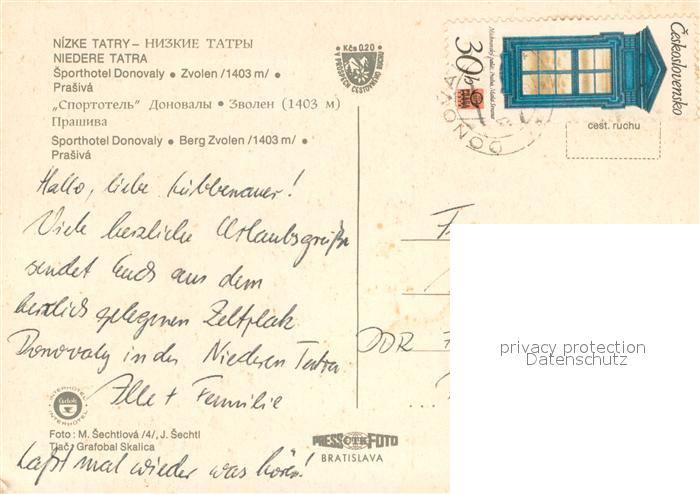 NÍZKE TATRY – НИЗКИЕ ТАТРЫ
NIEDERE TATRA
Športhotel Donovaly • Zvolen /1403 m/ •
Prašivá
„Спортотель" Доновалы • Зволен (1403 м)
Прашива
Sporthotel Donovaly • Berg Zvolen /1403 m/ •
Prašivá
Kčs 0.20
V PROSPECH CESTOVNÉHO RUCHU
30h
Československo
DONOVA
cest. ruchu
Hallo, liebe Lübbenauer!
Viele herzliche Urlaubsgrüße
sendet Euch aus dem
herrlich gelegenen Zeltplatz
Donovaly in der Niederen Tatra
+ Familie
F
DDR
privacy protection
Datenschutz
INTERHOTEL
Čedok
INTERHOTEL
Foto: M. Šechtlová /4/, J. Šechtl
Tlač: Grafobal Skalica
PRESSFOTO
BRATISLAVA
Laßt mal wieder was hören!